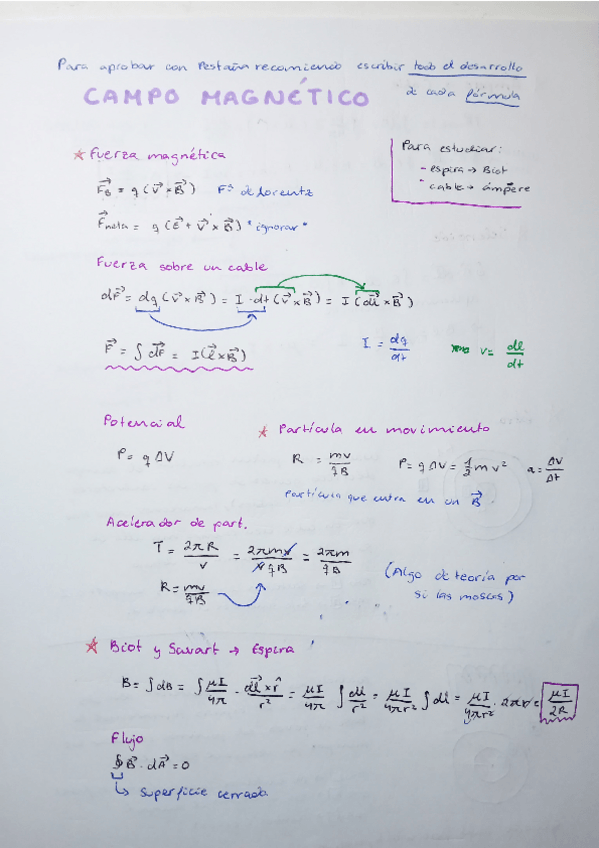 Para aprobar con Pestaña recomiendo escribir todo el desarrollo
de cada fórmula
CAMPO MAGNÉTICO
Para estudiar:
- espira → Biot
- cable → ámpere
* Fuerza magnética
F⃗_B = q (v⃗ × B⃗) Fª de Lorentz
F⃗neta = q (E⃗ + v⃗ × B⃗) *ignorar*
Fuerza sobre un cable
dF⃗ = dq (v⃗ × B⃗) = I · dt (v⃗ × B⃗) = I (dl⃗ × B⃗)
F⃗ = ∫ dF⃗ = I (l⃗ × B⃗)
I = dq/dt
v = dl/dt
Potencial
P = q ΔV
* Partícula en movimiento
R = mv/qB P = q ΔV = 1/2 m v² a = ΔV/Δt
Partícula que entra en un B⃗
Acelerador de part.
T = 2πR/v = 2πmv/vqB = 2πm/qB
R = mv/qB
(Algo de teoría por
si las moscas)
* Biot y Savart → Espira
B = ∫ dB = ∫ μI/4π · dl⃗ × r̂/r² = μI/4π ∫ dl/r² = μI/4πr² ∫ dl = μI/4πr² · 2πr = μI/2R
Flujo
∮ B⃗ · dA⃗ = 0
↳ superficie cerrada